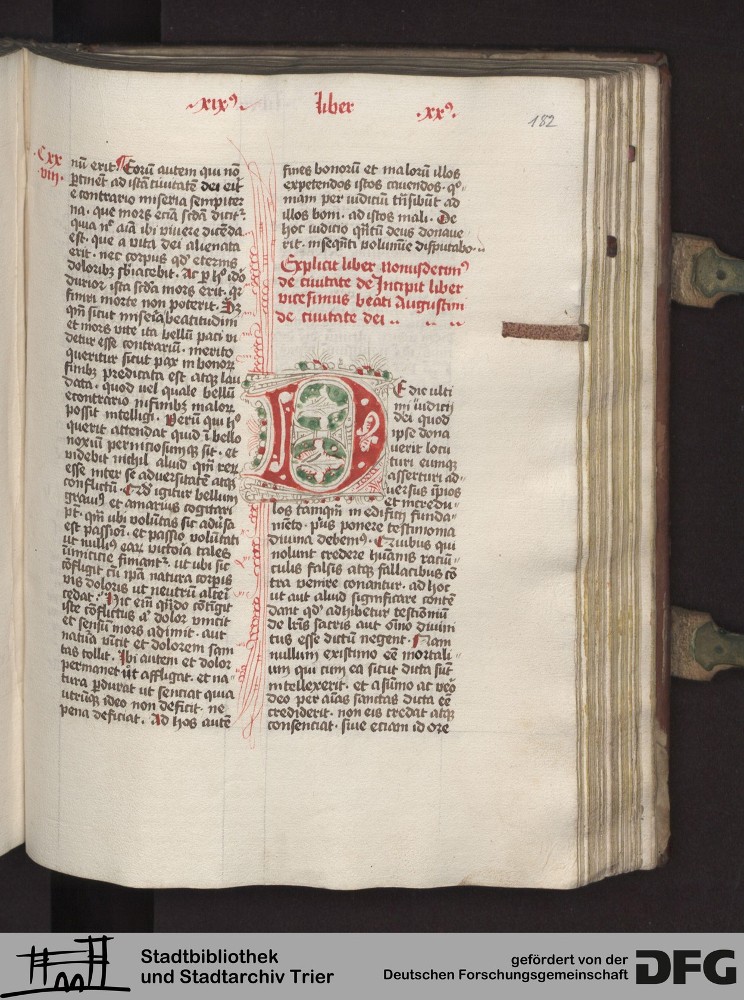 xixꝰ liber xxꝰ
182
Cxx
viii
nū erit. Eorū autem qui nō
ꝑtinēt ad istā ciuitatē dei erit
e contrario miseria sempiter
na. que mors eciā scda dicitͬ
quia nec aīa ibi viuere dicēda
est. que a vita dei alienata
erit. nec corpus qd eternis
doloribꝫ sbiacebit. Ac ꝑ hoc ido
durior ista scda mors erit. qꝛ
finiri morte non poterit.
qm sicut miseia beatitudini
et mors vite ita bellū paci vi
detur esse contrariū. merito
queritur sicut pax in bonorꝫ
finibꝫ predicata est atqꝫ lau
data. quod uel quale bellū
econtrario in finibꝫ malorꝫ
possit intelligi. Verū qui hoc
querit attendat quid ī bello
noxiū perniciosumqꝫ sit. et
videbit nichil aliud qm reꝝ
esse inter se aduersitatē atqꝫ
conflictū. Qd igitur bellum
grauiꝰ et amarius cogitari
pt. qm ubi volūtas sic adūsa
est passioī. et passio volūtati
ut nulliꝰ eaꝝ victoīa tales
inimicicie finiantͬ. ut ubi sic
cōfligit cū ipa natura corpis
vis doloris ut neutrū alteī
cedat. Hic eim quādo cōtigit
iste cōflictus aut dolor vincit
et sensū mors adimit. aut
natura vicit et dolorem sani
tas tollit. Ibi autem et dolor
permanet ut affligat. et na
tura ꝑdurat ut senciat quia
utrūqꝫ ideo non deficit. ne
pena deficiat. Ad hos autē
fines bonorū et malorū illos
expetendos istos cauendos. qo
niam per iudiciū trāsibūt ad
illos boni. ad istos mali. De
hoc iudicio quātū deus donaue
rit. in seqnti volumie disputabo.
Explicit liber nonusdecimꝰ
de ciuitate dei Incipit liber
vicesimus beati Augustini
de ciuitate dei
De die ulti
mi iudicij
dei quod
ipse dona
uerit locu
turi eumqꝫ
asserturi ad
uersus ipios
et incredu
los tamqm in edificij funda
mēto. pͥus ponere testimonia
diuina debemꝰ. Quibus qui
nolunt credere huānis raciū
culis falsis atqꝫ fallacibus cō
tra venire conantur. ad hoc
ut aut aliud significare contē
dant qd adhibetur testiōniū
de lrīs sacris aut oīno diuini
tus esse dictū negent. Nam
nullum existimo eē mortali
um qui cum ea sicut dicta sūt
intellexerit. et a sūmo ac vero
deo per aīas sanctas dicta eē
crediderit. non eis credat atqꝫ
consenciat. siue eciam id ore
Stadtbibliothek
und Stadtarchiv Trier
gefördert von der
Deutschen Forschungsgemeinschaft
DFG